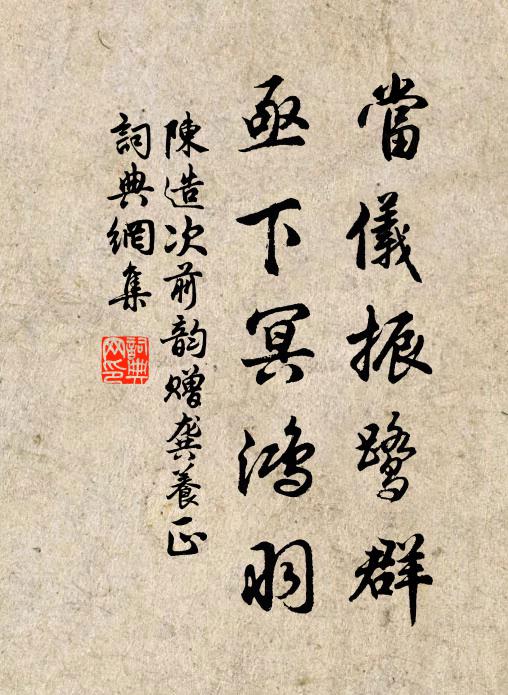 當儀振鷺群
亟下冥鴻羽
陳造次前韵贈龔養正
詞典網集
詞典網印